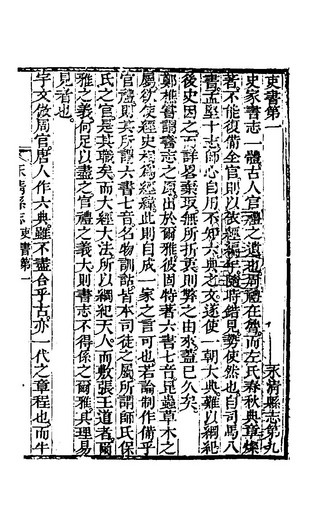 吏書第一
永清縣志第九
史家書志一體古人官禮之遺也周禮在魯而左氏春秋典章燦
著不能復備全官則以依經編年隨時錯見勢使然也自司馬八
書孟堅十志師心自用不知六典之文遂使一朝大典難以綱紀
後史因之而詳畧棄取無所折衷則弊之由來蓋已久矣
鄭樵嘗謂書志之原出於爾雅彼固特著六書七音昆蟲草木之
屬欲使經史相爲經緯此則自成一家之言可也若論制作備乎
官禮則其所謂六書七音名物訓詁皆本司徒之屬所謂師氏保
氏之官是其職矣而大經大法所以綱紀天人而敷張王道者爾
雅之義何足以盡之官禮之義大則書志不得係之爾雅其理易
見者也
宇文倣周官唐人作六典雖不盡合乎古亦一代之章程也而牛
永清縣志 吏書第一 一